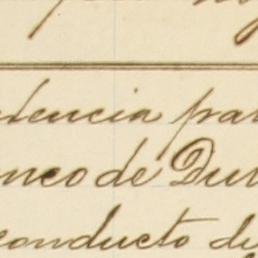 dencia par
nco de Dur
conducto de